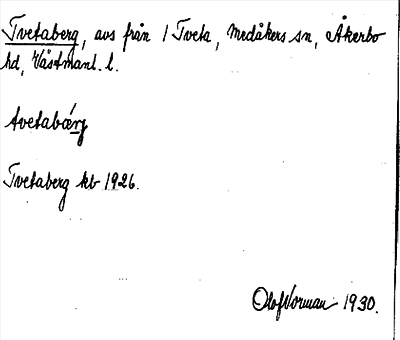 Tvetaberg, avs från 1 Tveta, Medåkers sn, Åkerbo
hd, Västmanl. l.
tvetabærj
Tvetaberg kb 1926.
Olof Norman 1930.